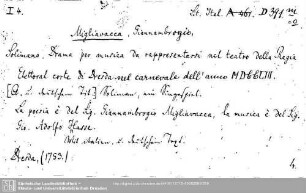 I 4.
Lt. Ital. A 461. D 391 m
Migliavacca, Giannambrogio,
Solimano. Drama per musica da rappresentarsi nel teatro della Regia
Elettoral corte di Dresda nel carnevale dell'anno MDCCLIII.
[G. c. deutschem Tit.] Soliman, ein Singspiel.
La poesia è del Sig. Giannambrogio Migliavacca, la musica è del Sig.
Gio. Adolfo Hasse.
Mit italien. u. deutschem Text.
Dresda, [1753.]
4.
Sächsische Landesbibliothek -
Staats- und Universitätsbibliothek Dresden